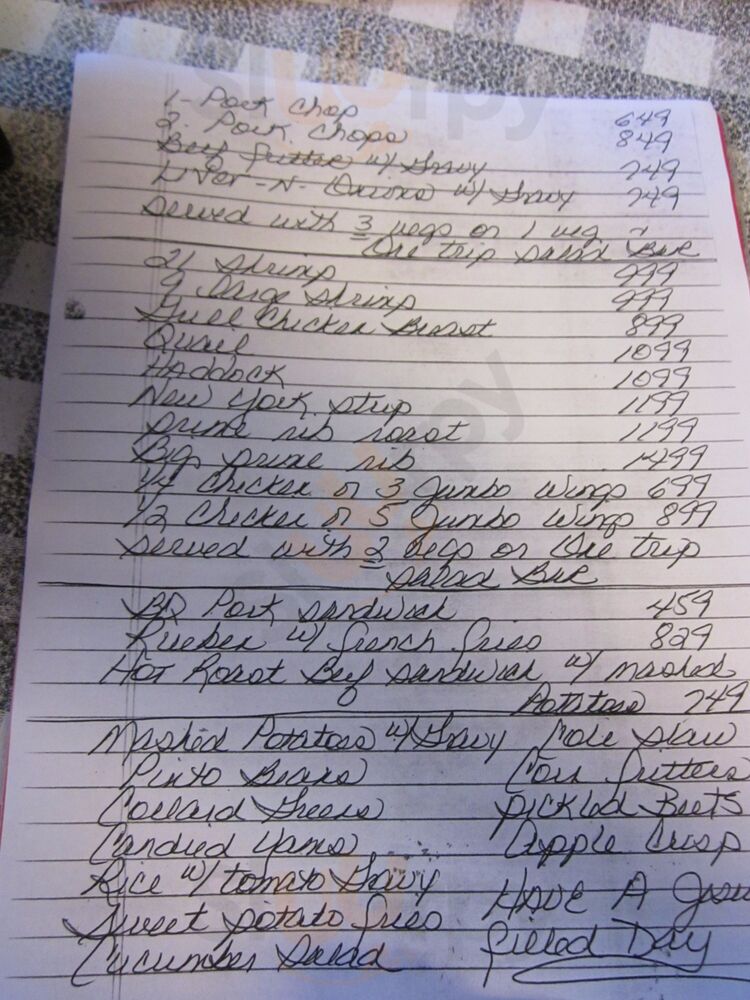 1- Pork Chop 649
2 Pork Chops 849
Beef fritter w/ Gravy 749
Liver-N-Onions w/ Gravy 749
Served with 3 vegs or 1 veg &
One trip Salad Bar
21 Shrimp 999
9 Large Shrimp 999
Full Chicken Breast 899
Quail 1099
Haddock 1099
New York Strip 1199
Prime rib roast 1199
Big prime rib 1499
1/4 Chicken or 3 Jumbo Wings 699
1/2 Chicken or 5 Jumbo Wings 899
Served with 2 vegs or One trip
Salad Bar
BQ Pork Sandwich 459
Rueben w/ french fries 829
Hot Roast Beef Sandwich w/ mashed
Potatoes 749
Mashed Potatoes w/ Gravy Cole Slaw
Pinto Beans Corn fritters
Collard Greens Pickled Beets
Candied Yams Apple Crisp
Rice w/ tomato Gravy
Have A Jesus
Sweet potato fries
filled Day
Cucumber Salad